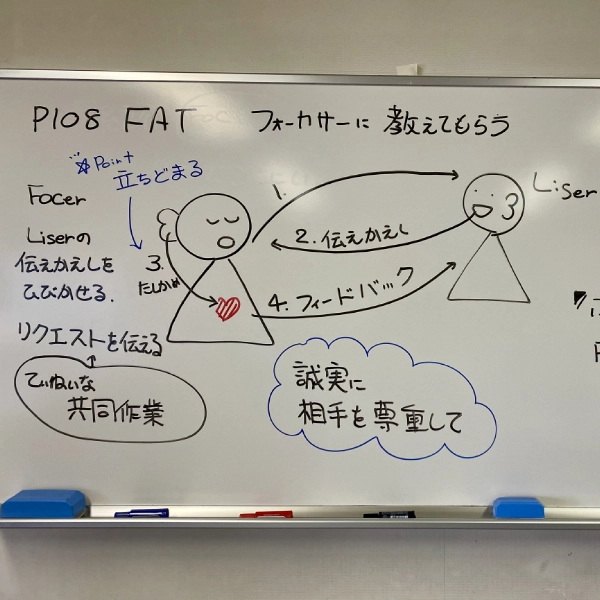 P108 FAT フォーカサーに 教えてもらう
Point
立ちどまる
Focer
Liserの
伝えかえしを
ひびかせる.
リクエストを伝える
ていねいな
共同作業
1.
2. 伝えかえし
3.
たしかめ
4. フィードバック
Liser
誠実に
相手を尊重して